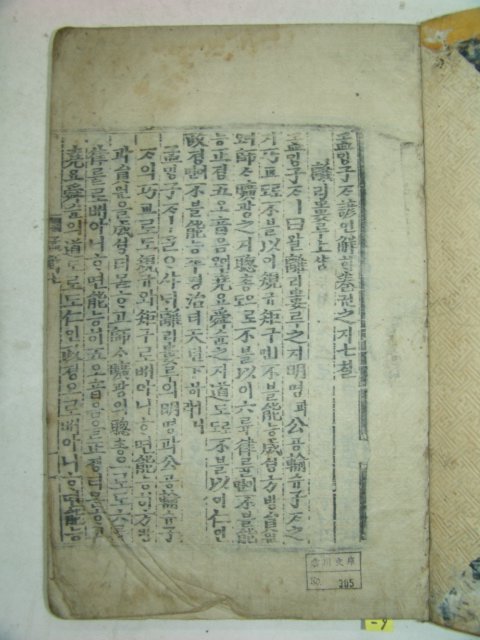 孟밍子ᄌᆞ諺언解ᄒᆡ卷권之지七칠
離리婁루上샹
孟밍子ᄌᆞㅣ曰왈離리婁루之지明명과公공輸슈子ᄌᆞ之
지巧교로도不블以이規규矩구ㅣ면不블能능成셩方방員원
이오師ᄉᆞ曠광之지聰총으로도不블以이六륙律률이면不블
能능正졍五오音음이오堯요舜슌之지道도로도不블以이仁인
政졍이면不블能능平평治티天텬下하ㅣ니라
孟밍子ᄌᆞㅣᄀᆞᆯᄋᆞ샤ᄃᆡ離리婁루의明명과公공輸슈子
ᄌᆞ의巧교로도規규와矩구로ᄡᅥ아니ᄒᆞ면能능히方방
과員원을成셩티몯ᄒᆞ고師ᄉᆞ曠광의聰총으로도六륙
律률로ᄡᅥ아니ᄒᆞ면能능히五오音음을正졍티몯ᄒᆞ고
堯요舜슌의道도로도仁인政졍으로ᄡᅥ아니ᄒᆞ면能능
川文庫
No.